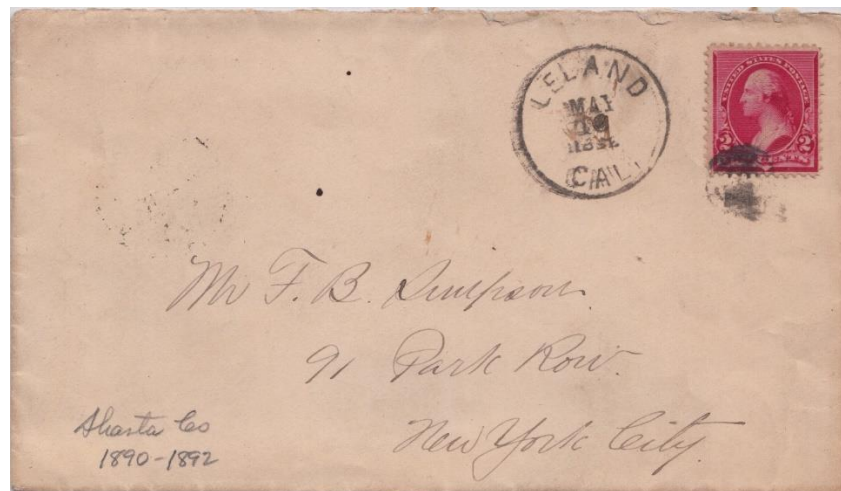 LELAND
MAY
CAL.
UNITED STATES POSTAGE
2 2
CENTS
Mr F. B. Simpson.
91 Park Row.
New York City.
Shasta Co
1890-1892